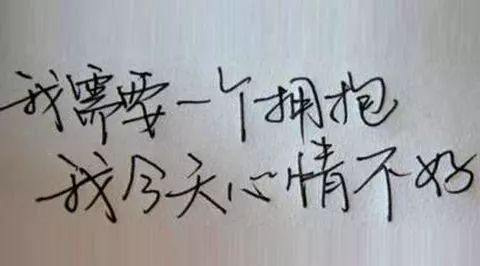 我需要一个拥抱
我今天心情不好